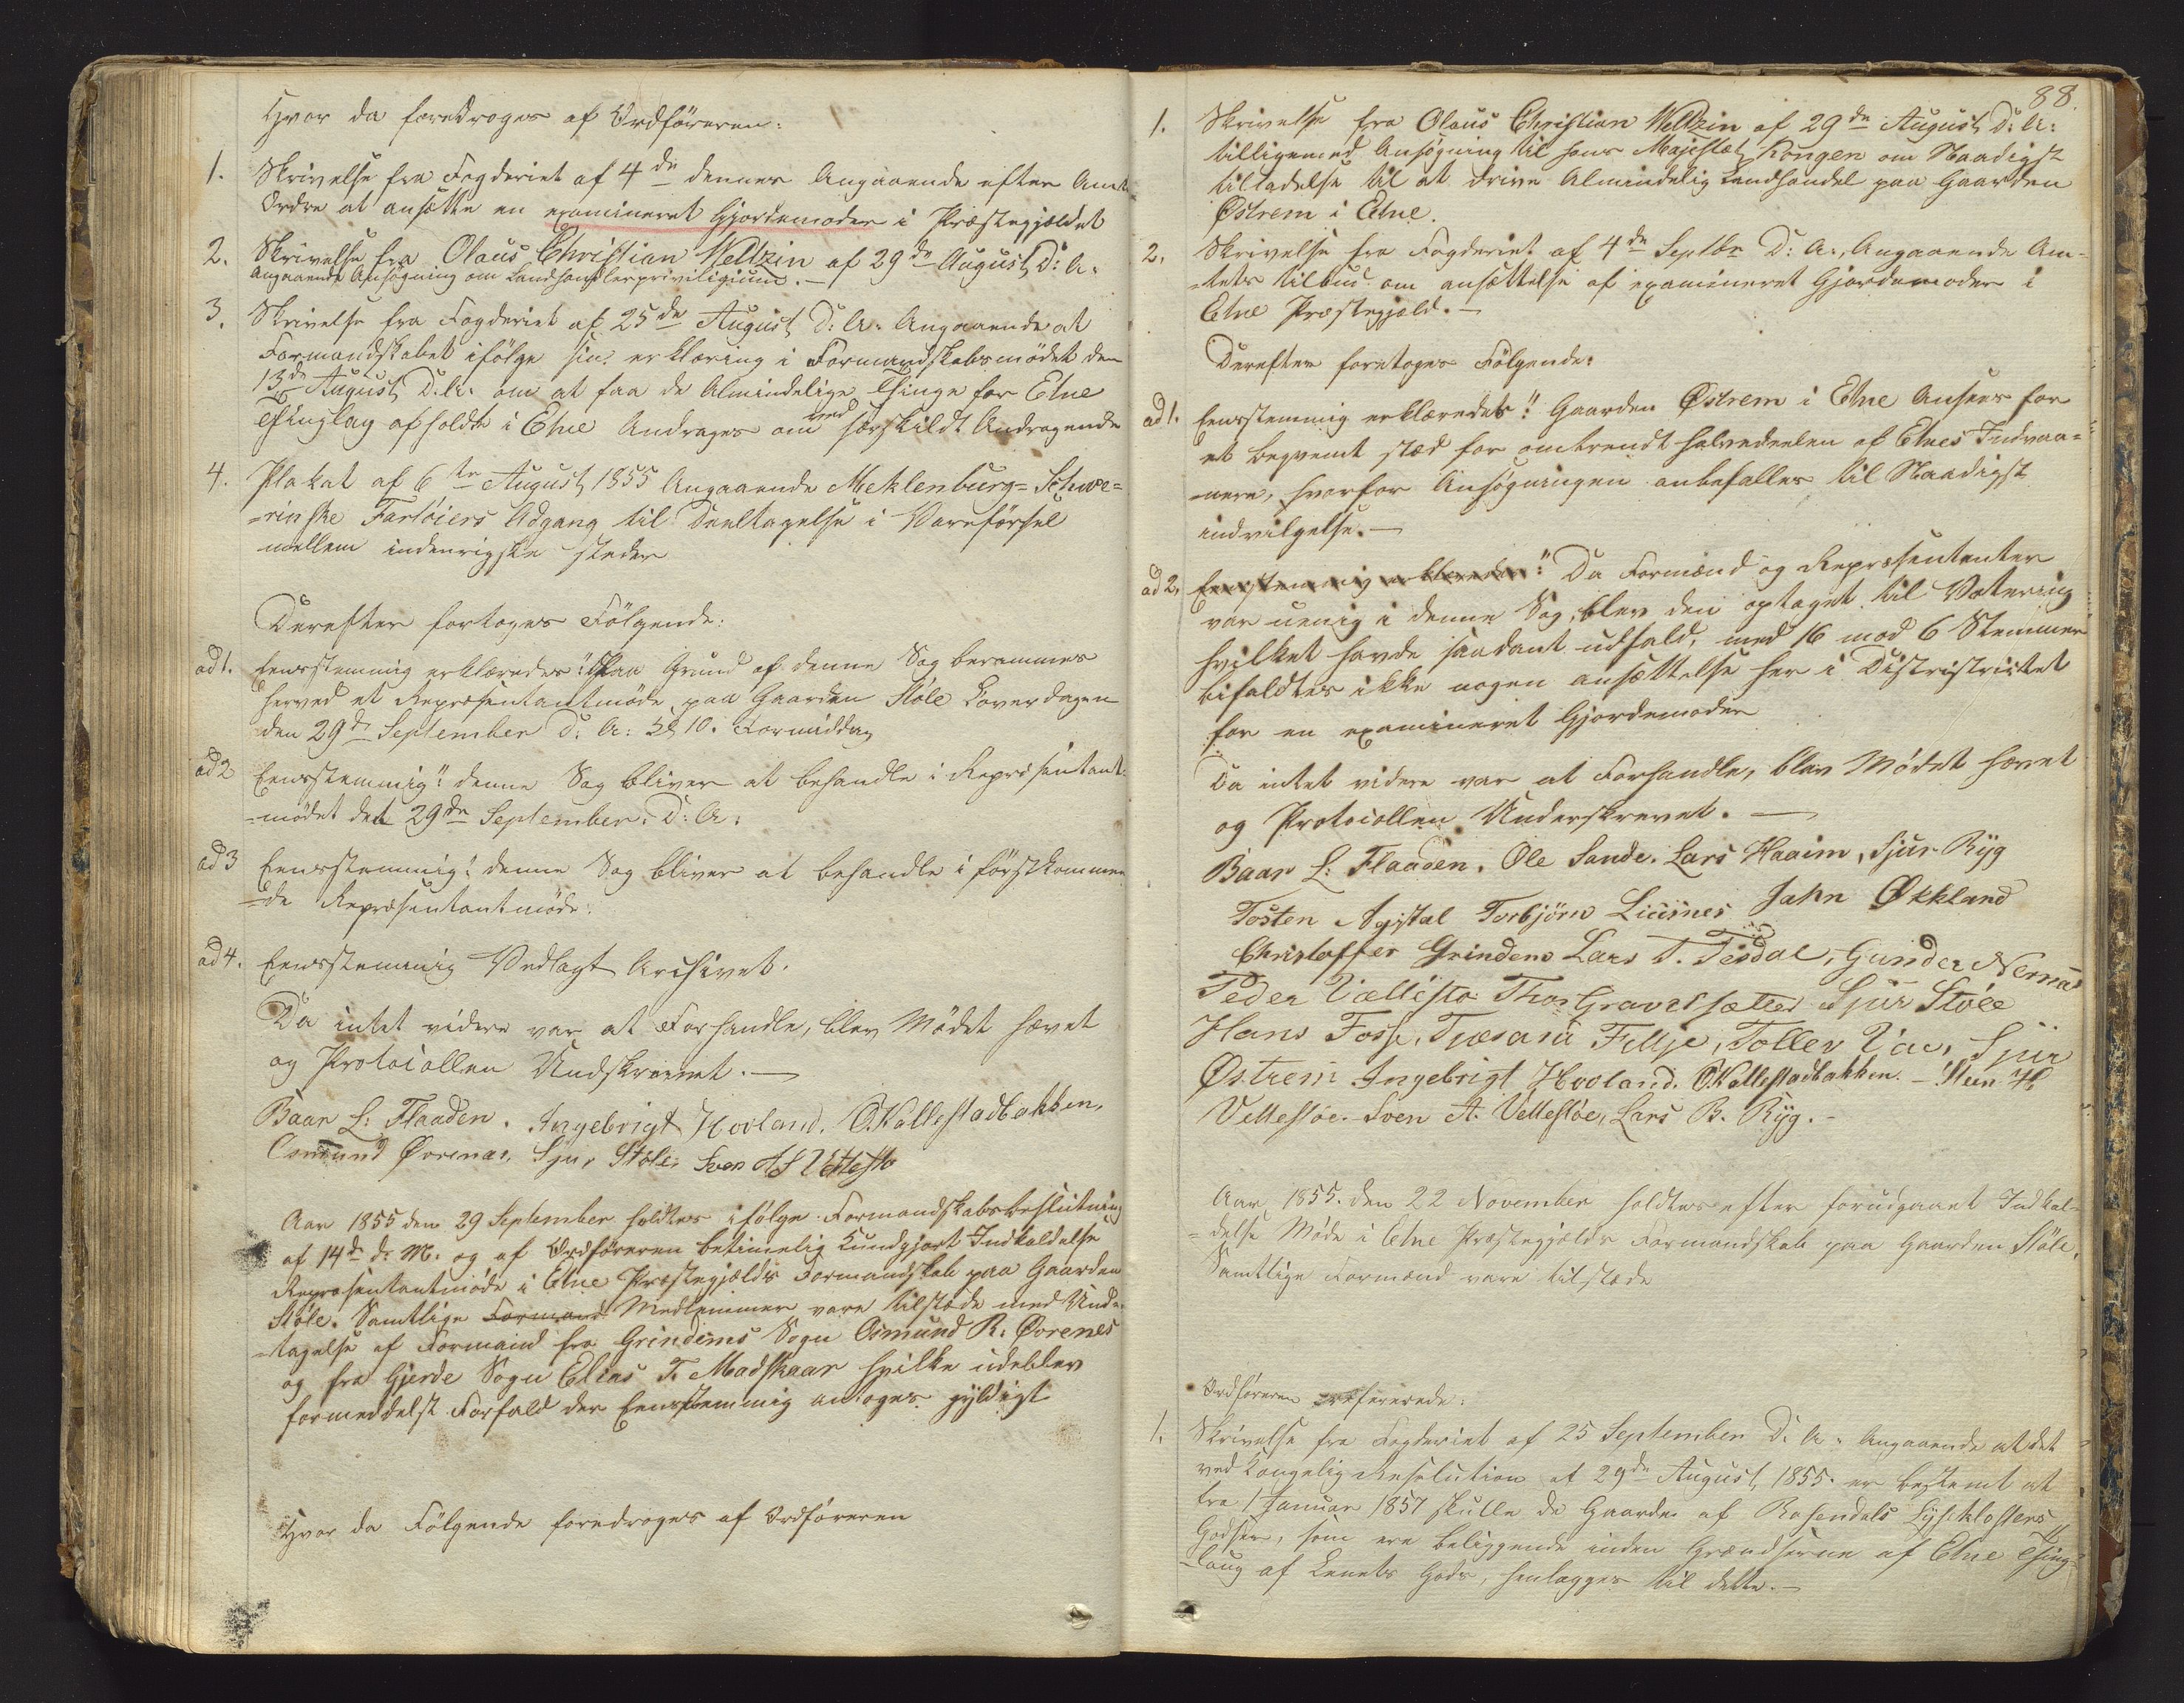 Hvor da foredroges af Ordføreren:
1. Skrivelse fra Fogderiet af 4de dennes Angaaende efter Amt
Ordre at ansætte en examineret Gjordemoder i Præstegjældet
2. Skrivelse fra Olaus Christian Weltzin af 29de August D: A:
angaaende Ansøgning om Landhandlerpriviligium. —
3. Skrivelse fra Fogderiet af 25de August D: A: Angaaende at
Formandskabet ifølge sin erklæring i Formandskabsmødet den
13de August D: A: om at faa de Almindelige Thinge for Etne
Thinglag afholdt i Etne Andrages om med særskildt Andragende
4. Plakat af 6te August 1855 Angaaende Meklenburg=Schwe=
=rinske Fartøiers Adgang til Deeltagelse i Vareførsel
mellem indenrigske steder
Derefter fortoges Følgende:
ad 1. Eensstemmig erklæredes: "Paa Grund af denne Sag berammes
herved et Repræsentantmøde paa Gaarden Støle Løverdagen
den 29de September D: A: Kl 10. Formiddag
ad 2 Eensstemmig" denne Sag bliver at behandle i Repræsentant
=mødet det 29de September. D: A:
ad 3 Eensstemmig: denne Sag bliver at behandle i førstkommen
=de Repræsentantmøde:
ad 4. Eensstemmig Vedlagt Archivet.
Da intet videre var at Forhandle, blev Mødet hævet
og Protocollen Undskrevet. —
Baar L: Flaaden. Ingebrigt Hovland. O. Kallestadbakken,
Osmund Ørrenes, Sjur Støle Sven A S Vettestø
Aar 1855 den 29 September holdtes ifølge Formandskabsbeslutning
af 14de d: M: og af Ordføreren betimelig Kundgjort Indkaldelse
Repræsentantmøde i Etne Præstegjælds Formandskab paa Gaarden
Støle. Samtlige Formænd Medlemmer vare tilstæde med Und-
-tagelse af Formand fra Grindems Sogn Osmund R: Øvrenes
og fra Gjerde Sogn Elias T. Madskaar hvilke udeblev
formedelst Forfald der Eenstemmig antoges gyldigt
Hvor da Følgende foredroges af Ordføreren
88.
1. Skrivelse fra Olaus Christian Weltzin af 29de August D: A:
tilligemed Ansøgning til hans Majestæt Kongen om Naadigst
tilladelse til at drive Almindelig Landhandel paa Gaarden
Østrem i Etne.
2. Skrivelse fra Fogderiet af 4de Septbr D: A:, Angaaende Am-
-tets tilbud om ansættelse af examineret Gjordemoder i
Etne Præstegjæld. —
Derefter foretoges Følgende:
ad 1. Eensstemmig erklæredes": Gaarden Østrem i Etne Ansees for
et beqvemt stæd for omtrendt halvedeelen af Etnes Indvaa=
=nere, hvorfor Ansøgningen anbefalles til Naadigst
indvilgelse. —
ad 2, Eenstemmig erklæredes": Da Formænd og Repræsentanter
var uenig i denne Sag, blev den optaget til Votering
hvilket havde saadant udfald, med 16 mod 6 Stemmer
bifaldtes ikke nogen ansættelse her i Distristrictet
for en examineret Gjordemoder
Da intet videre var at Forhandle, blev Mødet hævet
og Protocollen Underskrevet. —
Baar L: Flaaden. Ole Sande. Lars Haaim, Sjur Ryg
Tosten Agstal Torbjørn Liusnes Jahn Økkland
Christoffer Grindem Lars T. Tesdal, Gunder Nernæs
Peder Vællestø Thor Gravelsæter Sjur Støle
Hans Fosse, Tjæsara Fittje, Tollev Vae, Sjur
Østrem Ingebrigt Hovland. O. Kallestadbakken. — Steen H
Vettestøe. Sven A. Vettestøe, Lars B. Ryg. —
Aar 1855. den 22 November holdtes efter forudgaaet Indkal-
=delse Møde i Etne Præstegjælds Formandskab paa Gaarden Støle,
Samtlige Formænd vare tilstæde
Ordføreren refererede:
1. Skrivelse fra Fogderiet af 25 September D: A: Angaaende at det
ved Kongelig Resolution af 29de August 1855. er bestemt at
fra 1 Januar 1857 skulle de Gaarde af Rosendals Lyseklosters
Godser, som ere beliggende inden Grændserne af Etne Thing-
-laug af Lenets Gods, henlægges til dette. —